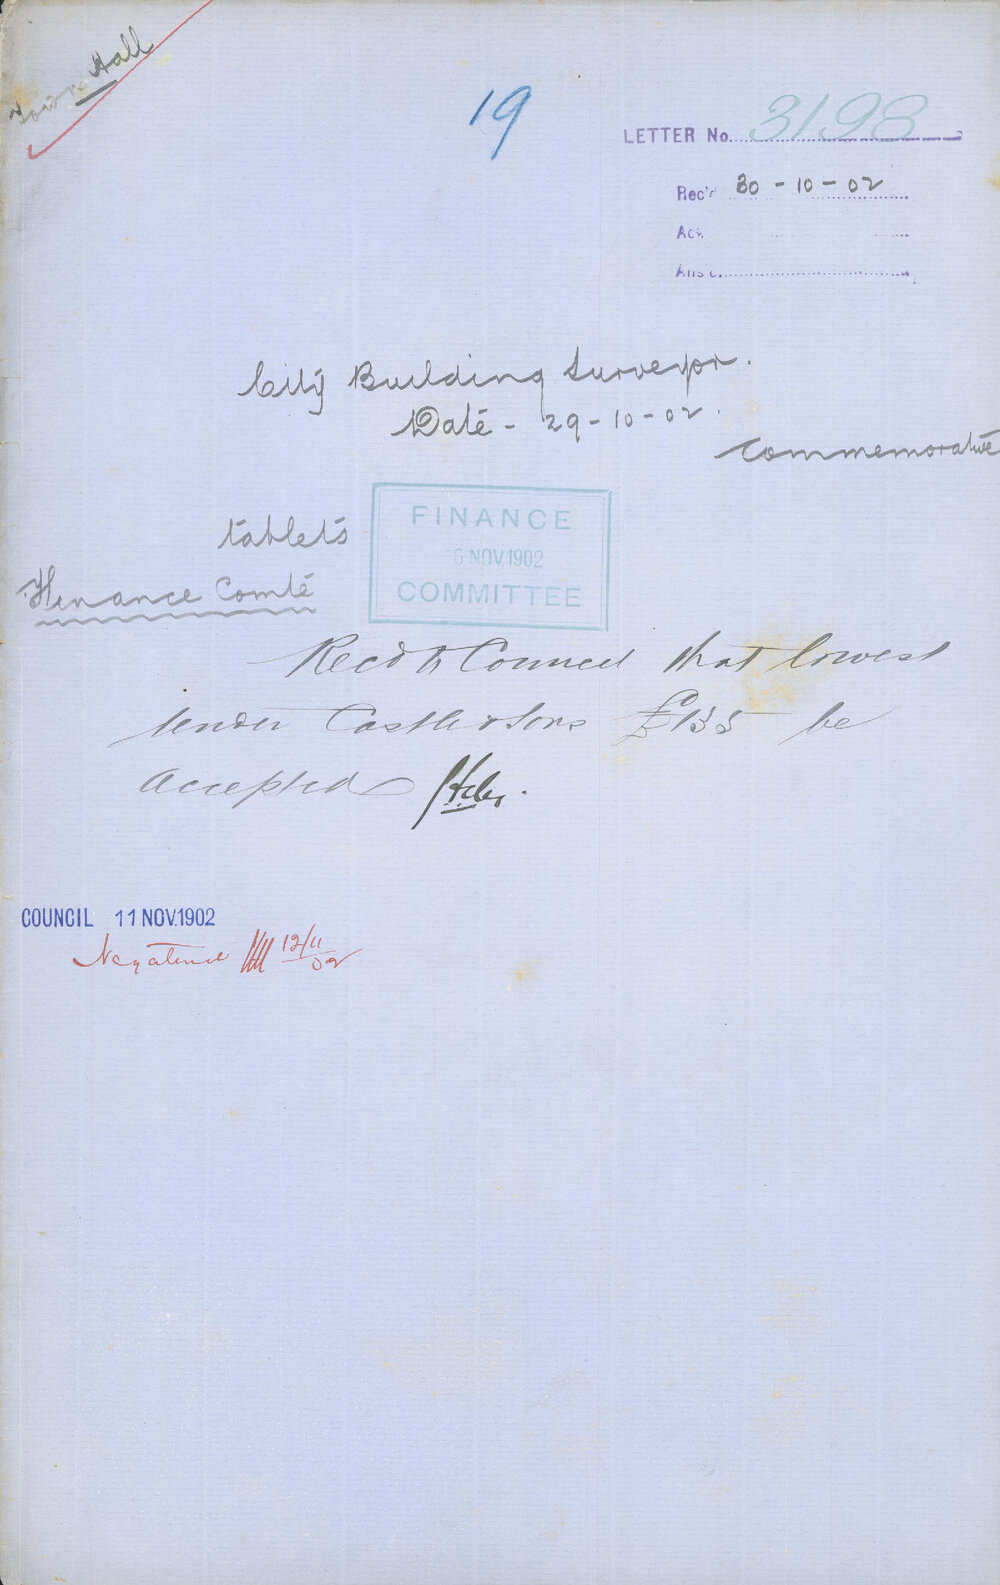 Town Hall
19
LETTER No. 3198
Rec'd 30-10-02
Ack
Ans'd
City Building Surveyor.
Date - 29-10-02.
Commemorative
tablets
FINANCE
6 NOV. 1902
COMMITTEE
Finance Comte
Recd to Council that lowest
tender Castle & Sons £135 be
accepted
COUNCIL 11 NOV. 1902
Negatived 12/11/02